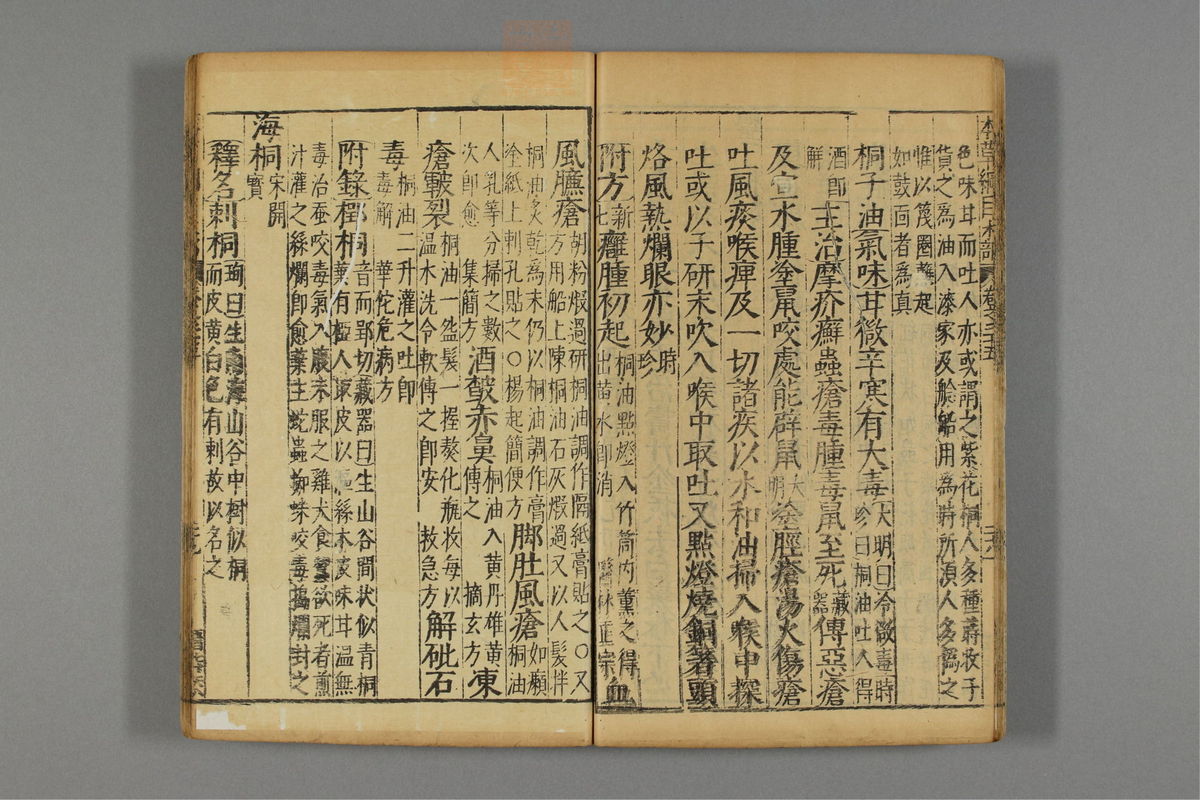 本草綱目木部 卷之三十五
色味甘而吐人亦或謂之紫花桐人多種蒔收子
貨之爲油入漆家及艌船用爲時所須人多僞之
惟以篾圈蘸起
如鼓面者爲真
桐子油氣味甘微辛寒有大毒大明曰冷微毒時
珍曰桐油吐人得
酒即
解主治摩疥癬蟲瘡毒腫毒鼠至死藏
器傅惡瘡
及宣水腫塗鼠咬處能辟鼠大
明塗脛瘡湯火傷瘡
吐風痰喉痺及一切諸疾以水和油掃入喉中探
吐或以子研末吹入喉中取吐又點燈燒銅筯頭
烙風熱爛眼亦妙時
珍
附方新
七癰腫初起桐油點燈入竹筒內薰之得
出黃水即消 醫林正宗血
風臁瘡胡粉煅過研桐油調作隔紙膏貼之〇又
方用船上陳桐油石灰煅過又以人髮拌
桐油炙乾爲末仍以桐油調作膏
塗紙上刺孔貼之〇楊起簡便方脚肚風瘡如癩桐油
人乳等分掃之數
次即愈 集簡方酒皶赤鼻桐油入黃丹雄黃
傅之 摘玄方凍
瘡皸裂桐油一盌髮一握熬化瓶收每以
温水洗令軟傅之即安 救急方解砒石
毒桐油二升灌之吐即
毒解 華佗危病方
附錄椰桐音而郢切藏器曰生山谷間狀似青桐
葉有椏人取皮以漚絲木皮味甘温無
毒治蚕咬毒氣入腹末服之雞犬食蚕欲死者煎
汁灌之絲爛即愈葉主蛇蟲蜘蛛咬毒搗爛封之
海桐宋開
寶
釋名刺桐珣曰生南海山谷中樹似桐
而皮黃白色有刺故以名之